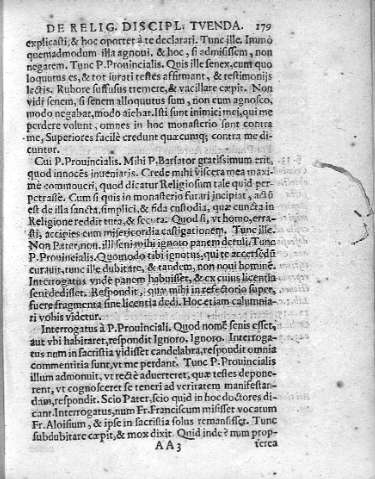 DE RELIG. DISCIPL. TVENDA. 179
explicasti; & hoc oportet à te declarari. Tunc ille. Immò
quemadmodum illa agnoui, & hoc, si admisissem, non
negarem. Tunc P. Prouincialis. Quis ille senex, cum quo
loquutus es, & tot iurati testes affirmant, & testimonijs
lectis. Rubore suffusus tremere, & vacillare cœpit. Non
vidi senem, si senem alloquutus sum, non eum agnosco,
modo negabat, modo aiebat. Isti sunt inimici mei, qui me
perdere volunt, omnes in hoc monasterio sunt contra
me, Superiores facilè credunt quæcumq; contra me di-
cuntur.
Cui P. Prouincialis. Mihi P. Barsator gratissimum erit,
quod innocēs inueniaris. Crede mihi viscera mea maxi-
mè commoueri, quod dicatur Religiosum tale quid per-
petrasse. Cum si quis in monasterio furari incipiat, actū
est de illa sancta, simplici, & fida custodia, quæ cuncta in
Religione reddit tuta, & secura. Quod si, vt homo, erra-
sti, accipies cum misericordia castigationem. Tunc ille.
Non Pater, non. Illi seni mihi ignoto panem detuli. Tunc
P. Prouincialis. Quomodo tibi ignotus, qui te accersedū
curauit, tunc ille dubitare, & tandem, non noui hominē.
Interrogatus vnde panem habuisset, & ex cuius licentia
seni dedisset. Respondit, quæ mihi in refectorio super-
fuere fragmenta sine licentia dedi. Hoc etiam calumnia-
ri vobis videtur.
Interrogatus à P. Prouinciali. Quod nomē senis esset,
aut vbi habitaret, respondit Ignoro, Ignoro. Interroga-
tus num in sacristia vidisset candelabra, respondit omnia
commentitia sunt, vt me perdant. Tunc P. Prouincialis
illum admonuit, vt rectè aduerteret, quæ testes depone-
rent, vt cognosceret se teneri ad veritatem manifestan-
dam, respondit. Scio Pater, scio quid in hoc doctores di-
cant. Interrogatus, num Fr. Franciscum misisset vocatum
Fr. Aloisium, & ipse in sacristia solus remansisset. Tunc
subdubitare cœpit, & mox dixit. Quid inde? num prop-
AA3 terea